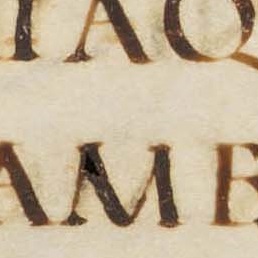 IAQ
AMB